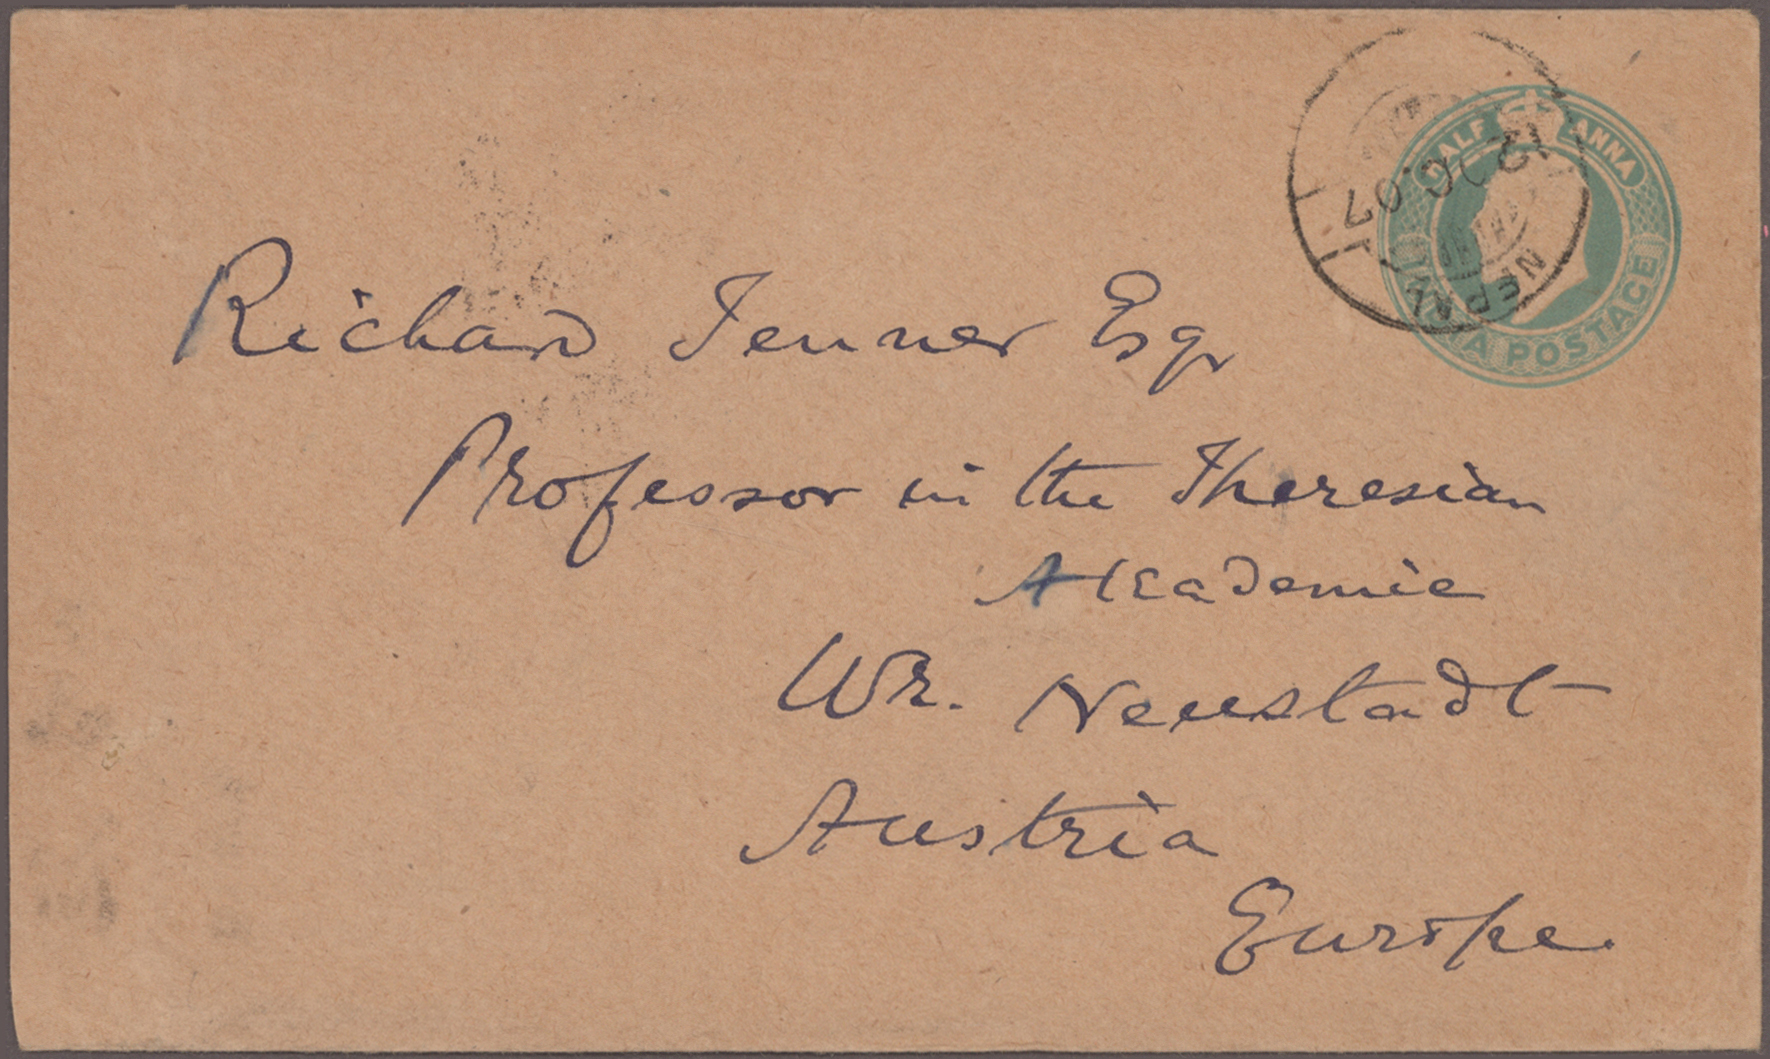 HALF ANNA
POSTAGE
NEPAL
Richard Jenner Esqr
Professor in the Theresian
Akademie
Wr. Neustadt
Austria
Europe.